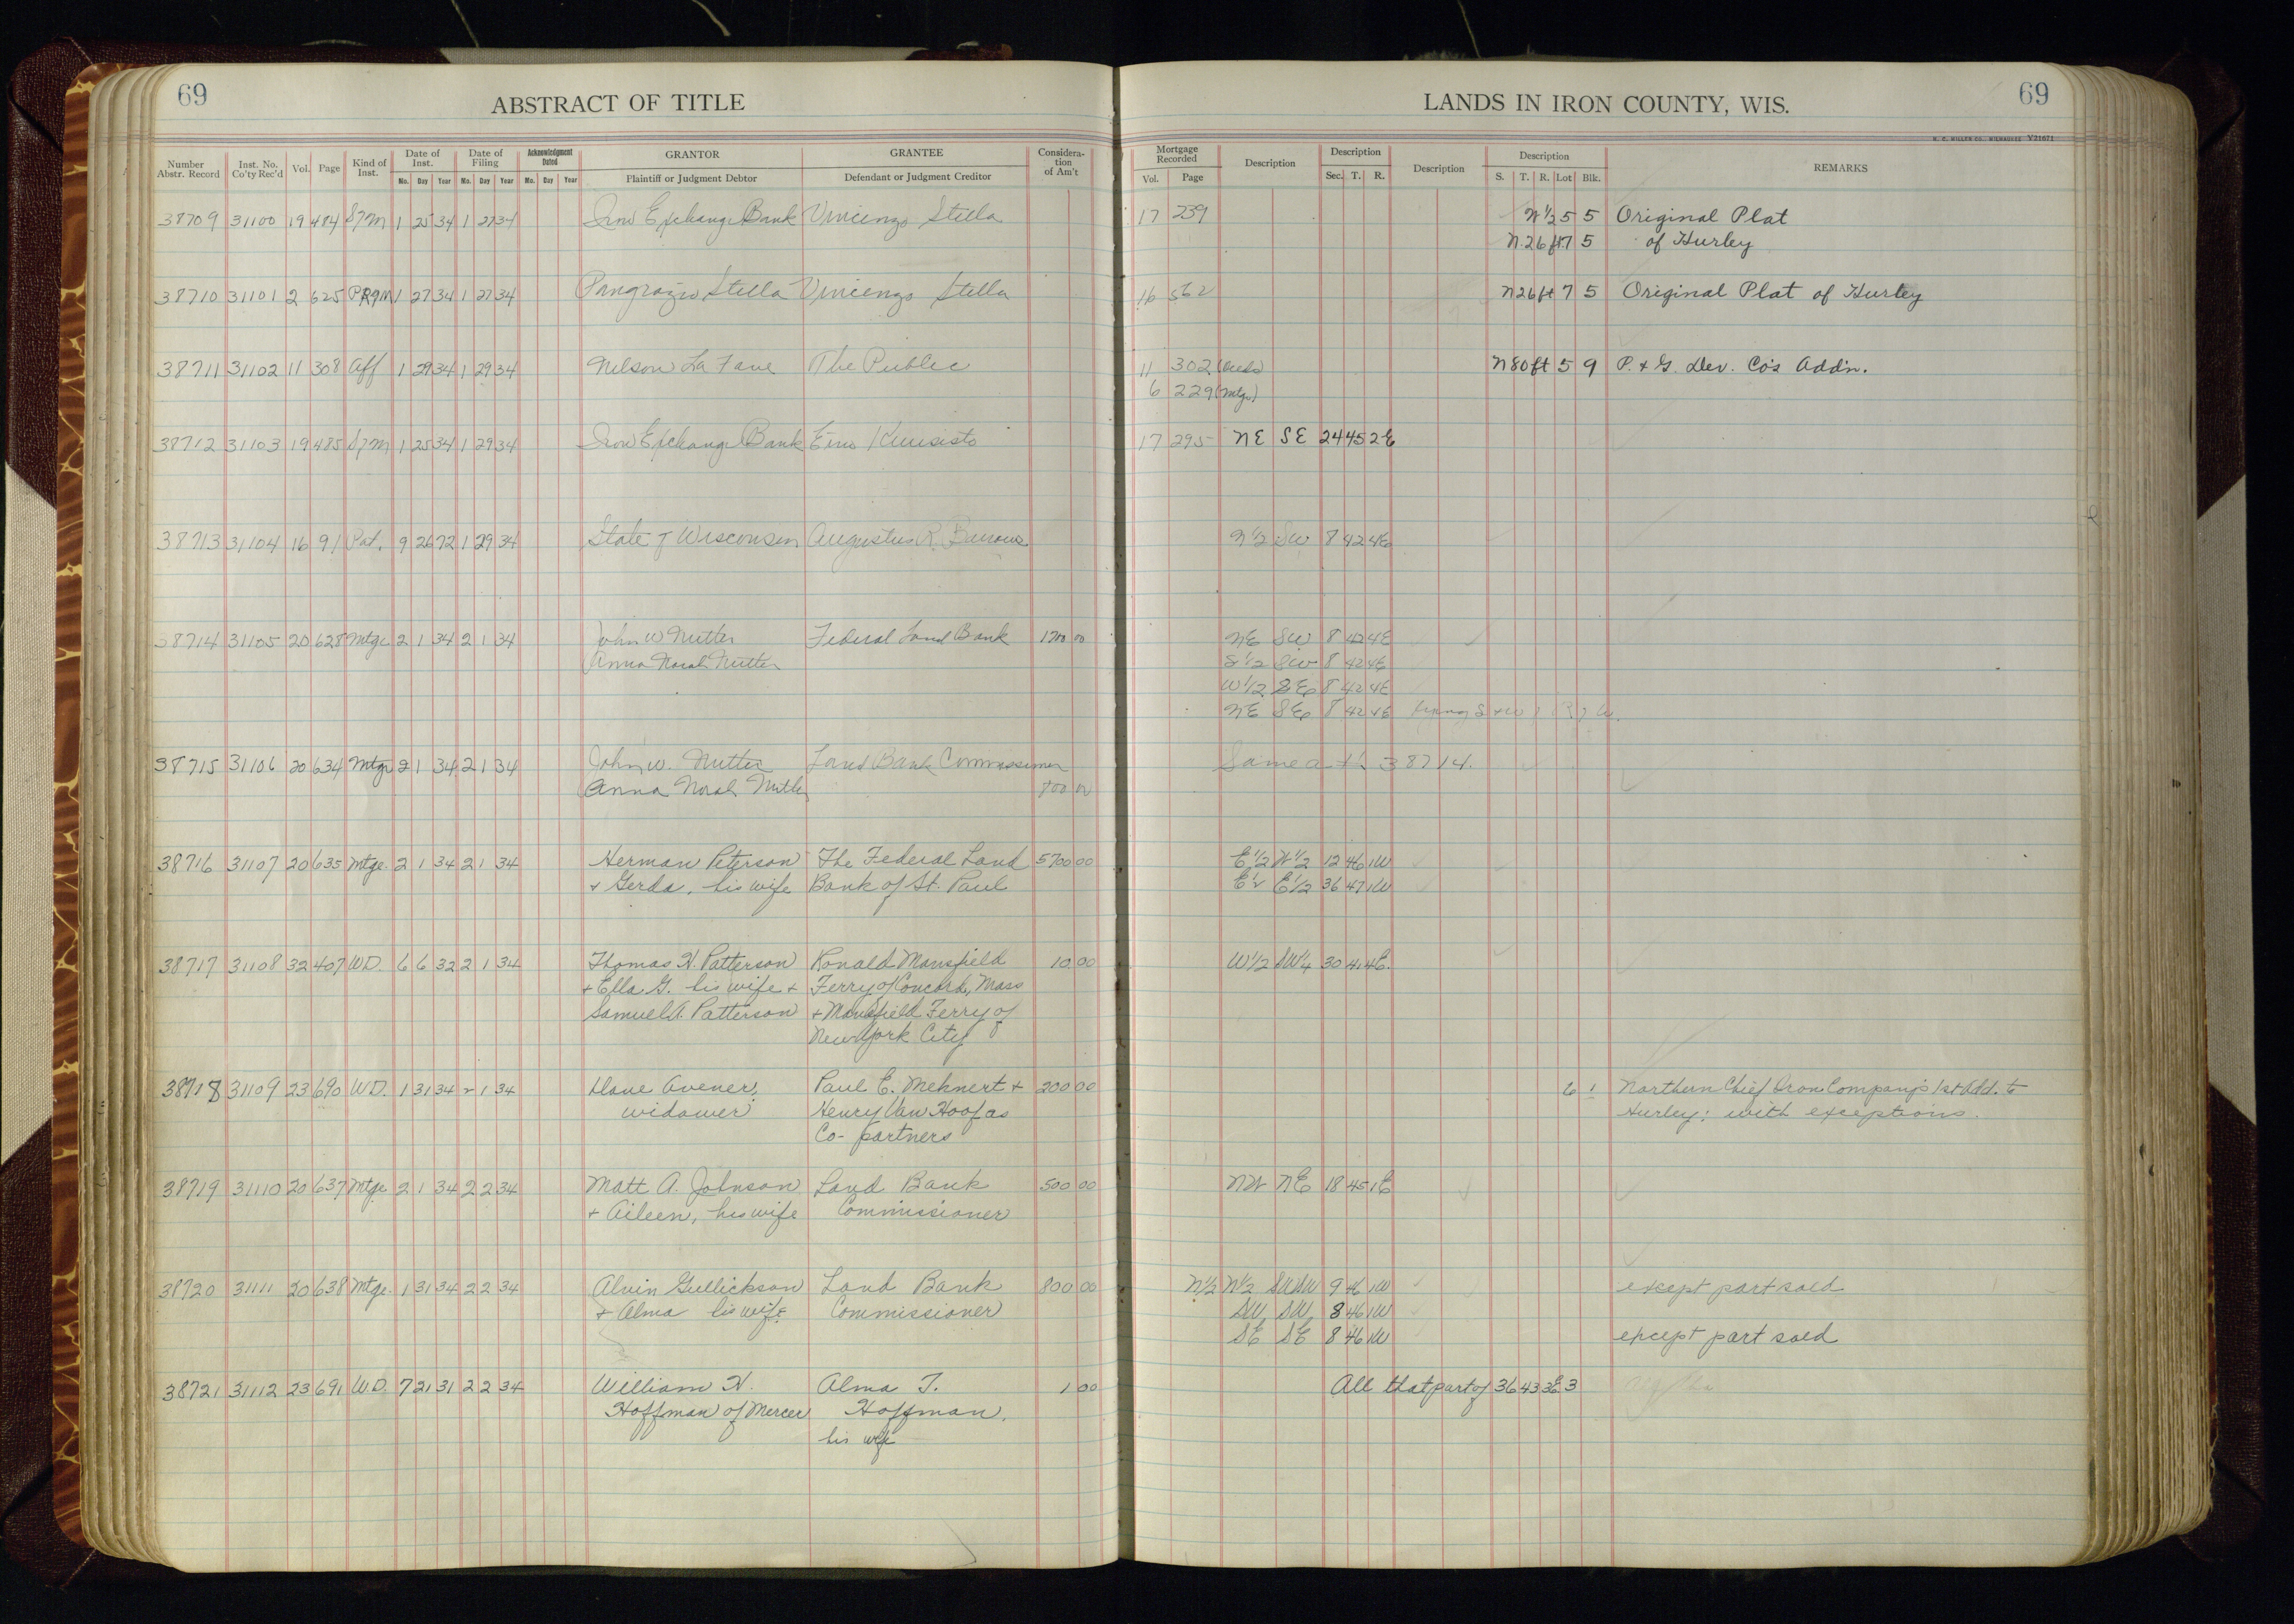 69
ABSTRACT OF TITLE
Number Abstr. Record Inst. No. Co'ty Rec'd Vol. Page Kind of Inst. Date of Inst. Mo. Day Year Date of Filing Mo. Day Year Acknowledgment Dated Mo. Day Year GRANTOR Plaintiff or Judgment Debtor GRANTEE Defendant or Judgment Creditor Considera-tion of Am't
38709 31100 19 484 S/M 1 25 34 1 27 34 Iron Exchange Bank Vincenzo Stella
38710 31101 2 625 1 27 34 1 27 34 Pangrazio Stella Vincenzo Stella
38711 31102 11 308 Aff 1 29 34 1 29 34 Nelson La Fave The Public
38712 31103 19 485 S/M 1 25 34 1 29 34 Iron Exchange Bank Eino Kuusisto
38713 31104 16 91 Pat. 9 26 72 1 29 34 State of Wisconsin Augustus R. Barrows
38714 31105 20 628 Mtge 2 1 34 2 1 34 John W Nutter Federal Land Bank 1700 00
Anna Norah Nutter
38715 31106 20 634 Mtge 2 1 34 2 1 34 John W. Nutter Land Bank Commissioner
Anna Norah Nutter 800 00
38716 31107 20 635 Mtge. 2 1 34 2 1 34 Herman Peterson The Federal Land 5700 00
+ Gerda, his wife Bank of St. Paul
38717 31108 32 407 W.D. 6 6 32 2 1 34 Thomas H. Patterson Ronald Mansfield 10 00
+ Ella G. his wife + Ferry of Concord, Mass
Samuel A. Patterson + Mansfield Ferry of
New York City
38718 31109 23 690 W.D. 1 31 34 2 1 34 Dave Avener, Paul E. Mehnert + 200 00
widower Henry Van Hoof as
Co-partners
38719 31110 20 637 Mtge 2 1 34 2 2 34 Matt A. Johnson Land Bank 500 00
+ Aileen, his wife Commissioner
38720 31111 20 638 Mtge. 1 31 34 2 2 34 Alvin Gullickson Land Bank 800 00
+ Alma his wife Commissioner
38721 31112 23 691 W.D. 7 21 31 2 2 34 William H. Alma T. 1 00
Hoffman of Mercer Hoffman,
his wife
LANDS IN IRON COUNTY, WIS.
69
H. C. MILLER CO., MILWAUKEE V21671
Mortgage Recorded Vol. Page Description Description Sec. T. R. Description Description S. T. R. Lot Blk. REMARKS
17 239 N 1/2 5 5 Original Plat
N. 26 ft 7 5 of Hurley
16 562 N 26 ft 7 5 Original Plat of Hurley
11 302 (Deeds) N 80 ft 5 9 P. + G. Dev. Co's Addn.
6 229 (Mtgs)
17 295 NE SE 24 45 2E
N 1/2 SW 8 42 4E
NE SW 8 42 4E
S 1/2 SW 8 42 4E
W 1/2 SE 8 42 4E
NE SE 8 42 4E lying S + W of R of W.
Same as in 38714.
E 1/2 W 1/2 12 46 1W
E 1/2 E 1/2 36 47 1W
W 1/2 SW 1/4 30 41 4E.
6 1 Northern Chief Iron Company's 1st Add. to
Hurley; with exceptions.
NW NE 18 45 1E
N 1/2 N 1/2 SW SW 9 46 1W except part sold
SW SW 8 46 1W
SE SE 8 46 1W except part sold
All that part of 36 43 3E 3